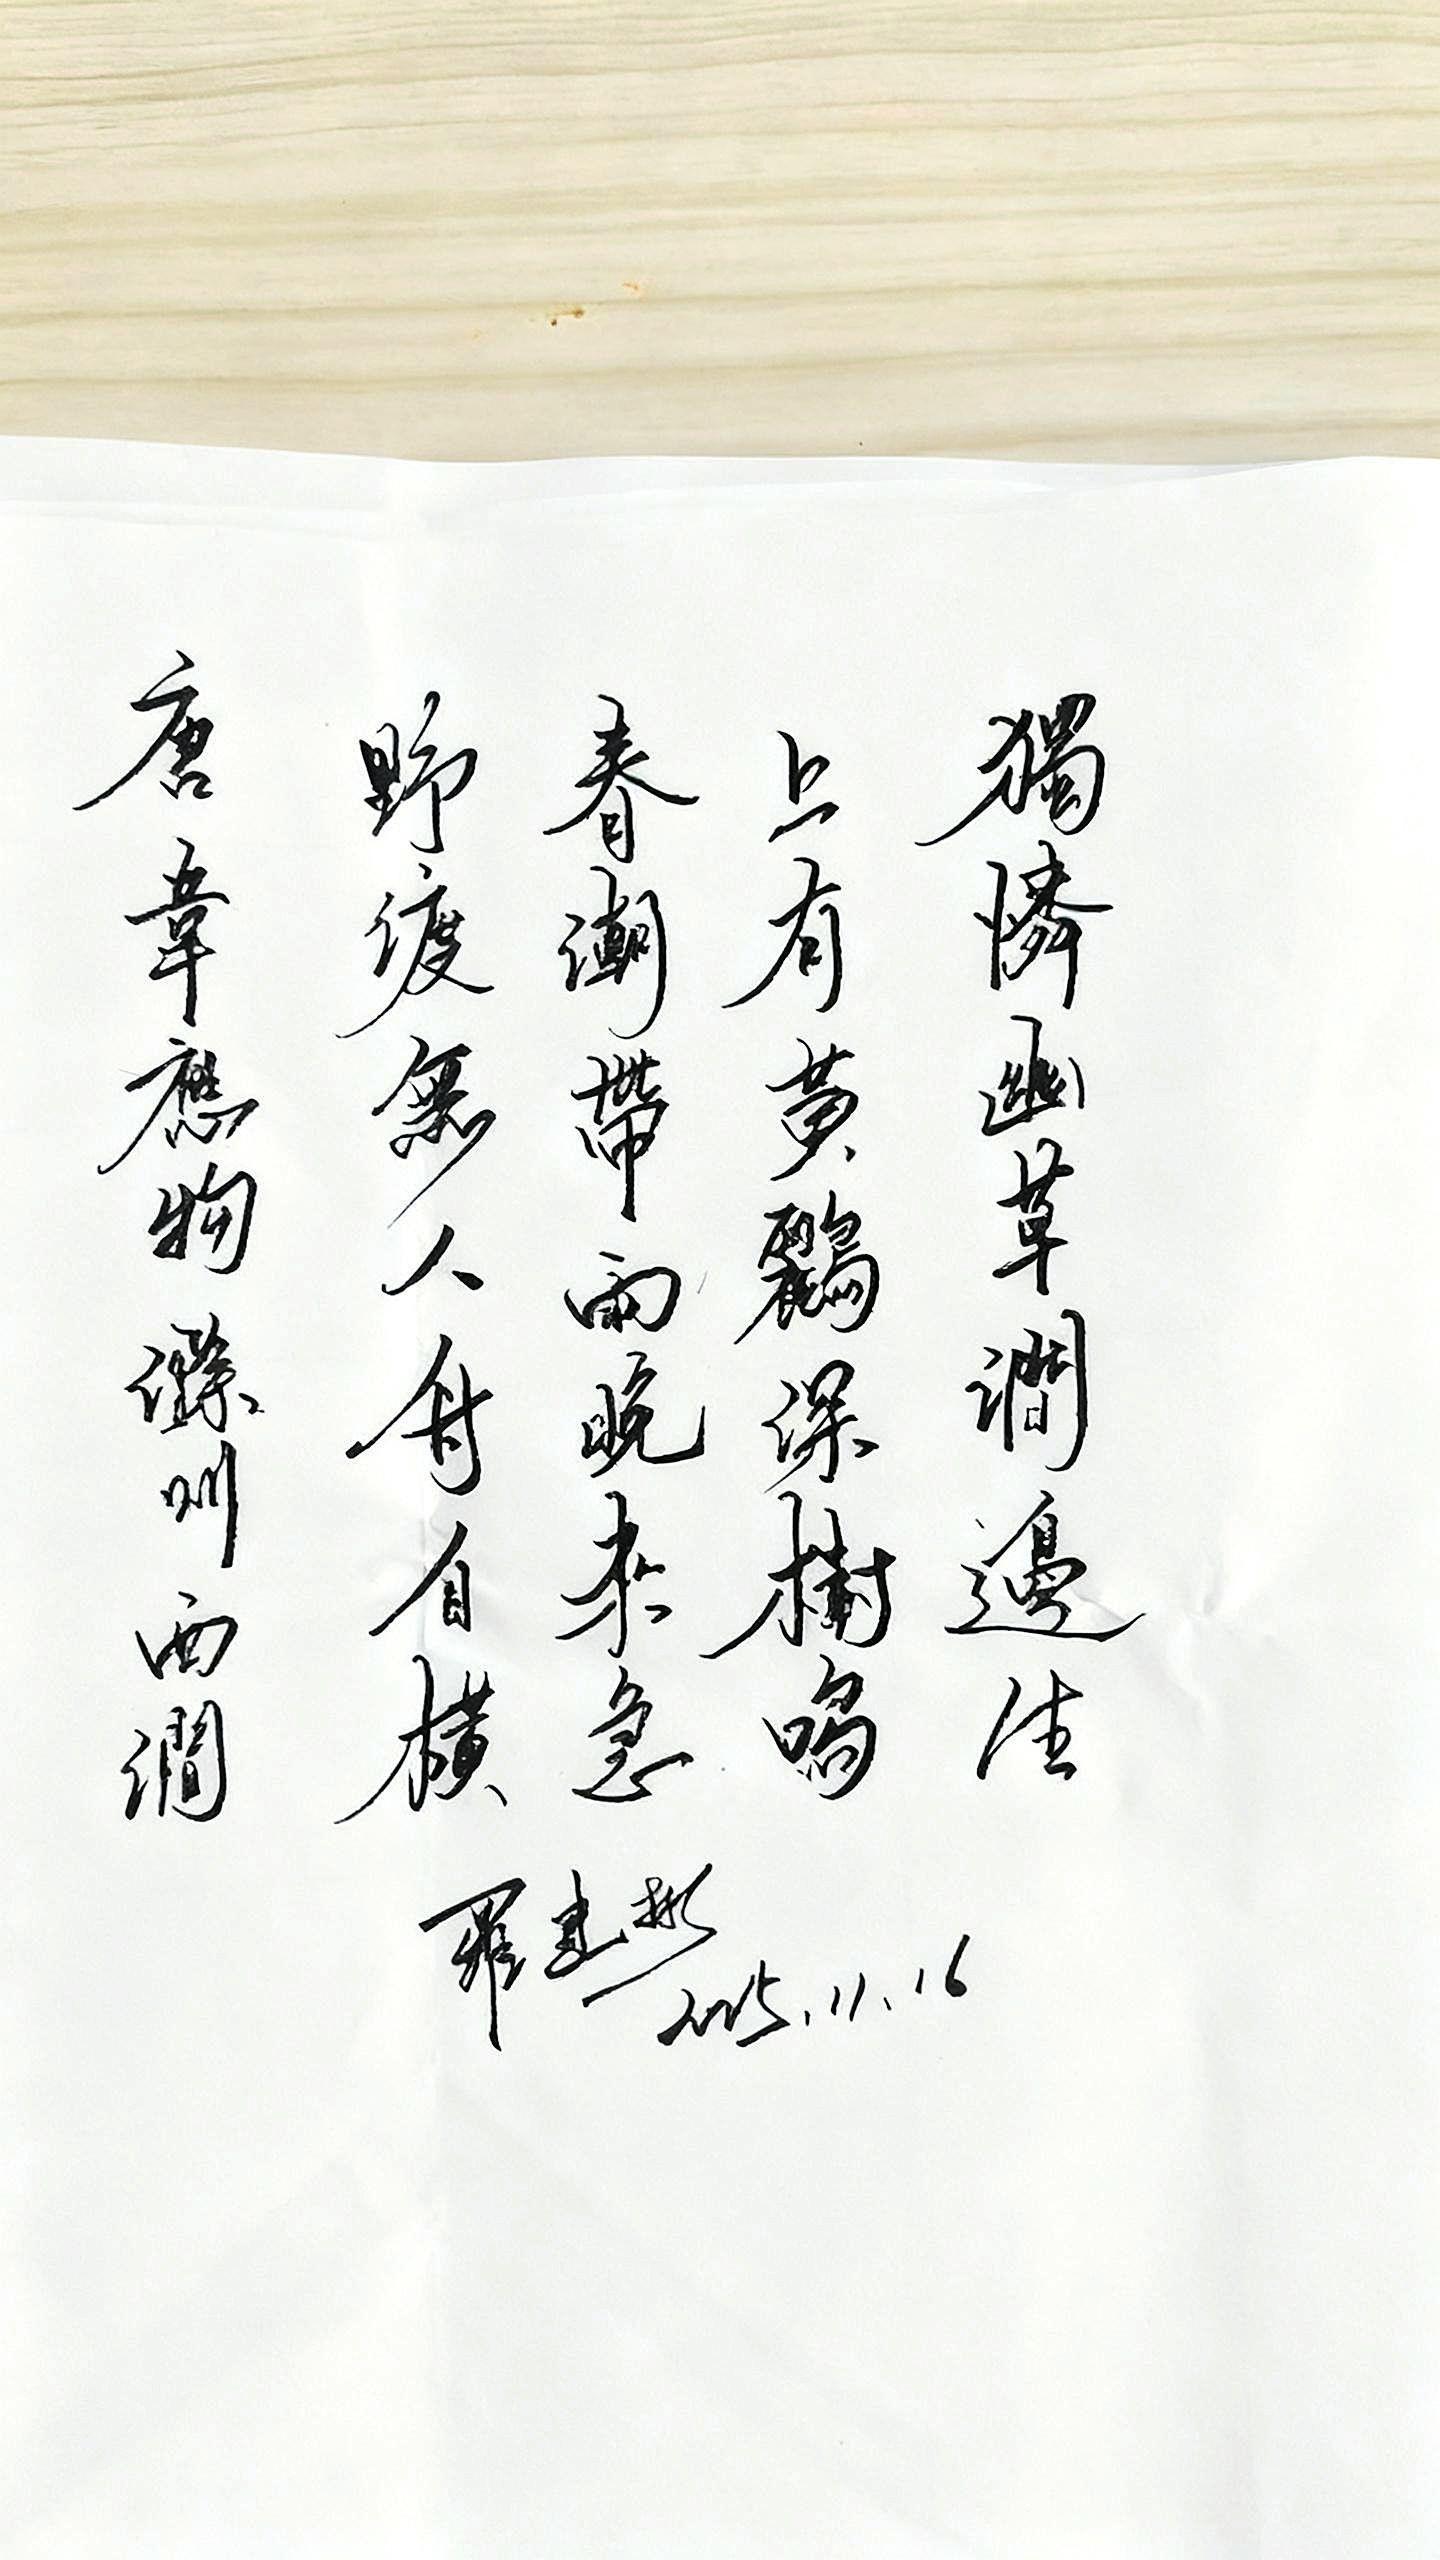 獨憐幽草澗邊生
上有黃鸝深樹鳴
春潮帶雨晚来急
野渡無人舟自橫
唐韋應物滁州西澗
羅建彬
2025.11.16